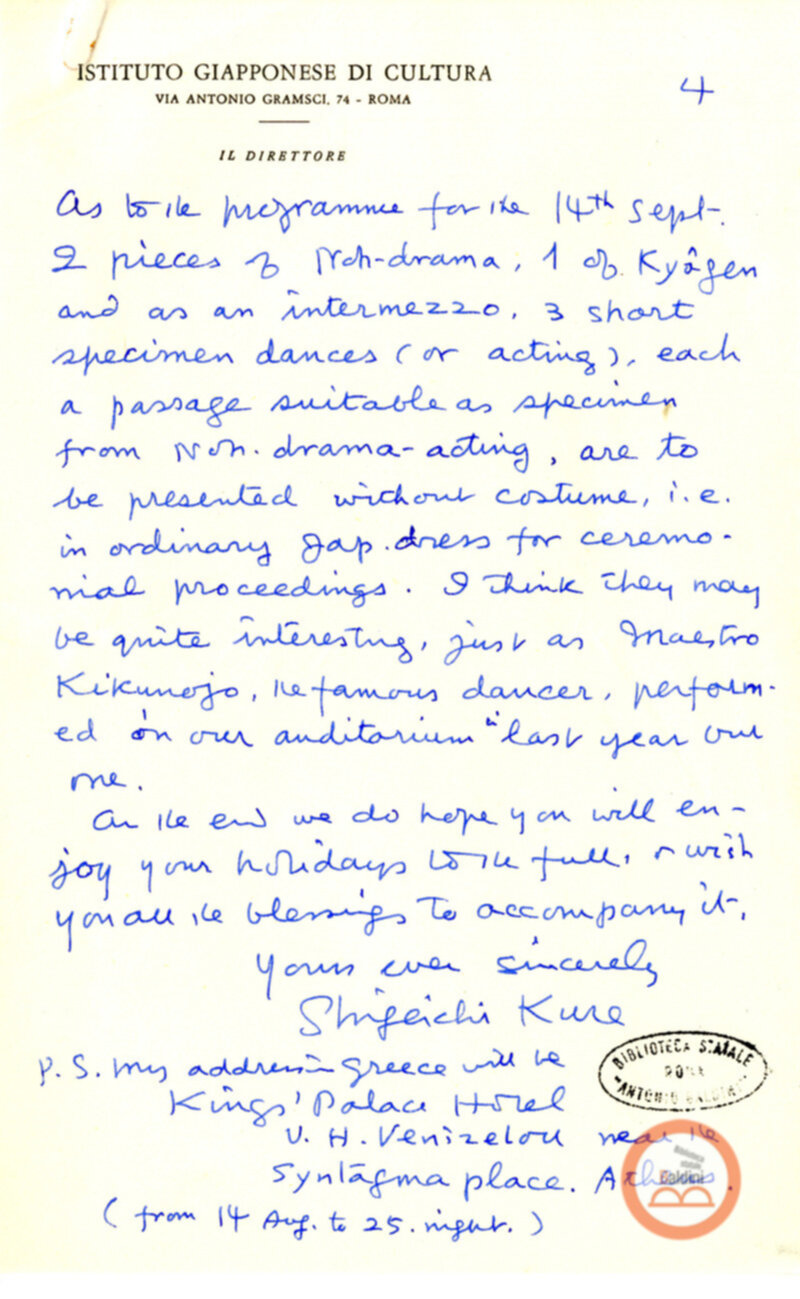 ISTITUTO GIAPPONESE DI CULTURA
VIA ANTONIO GRAMSCI, 74 - ROMA
4
IL DIRETTORE
As to the programme for the 14th Sept.
2 pieces of Noh-drama, 1 of Kyôgen
and as an intermezzo, 3 short
specimen dances (or acting), each
a passage suitable as specimen
from Noh-drama-acting, are to
be presented without costume, i.e.
in ordinary Jap. dress for ceremo-
nial proceedings. I think they may
be quite interestng, just as Maestro
Kikunojo, the famous dancer, perform-
ed on our auditorium in last year
one.
At the end we do hope you will en-
joy your holidays to the full, & wish
you all the blessings to accompany it.
Yours ever sincerely
Shigeichi Kure
P.S. My address in Greece will be
Kings' Palace Hotel
V. H. Venizelou near the
Syntāgma place. Athens.
(from 14 Aug. to 25. night.)
BIBLIOTECA STATALE
ROMA
"ANTONIO BALDINI"
Biblioteca
statale
Baldini